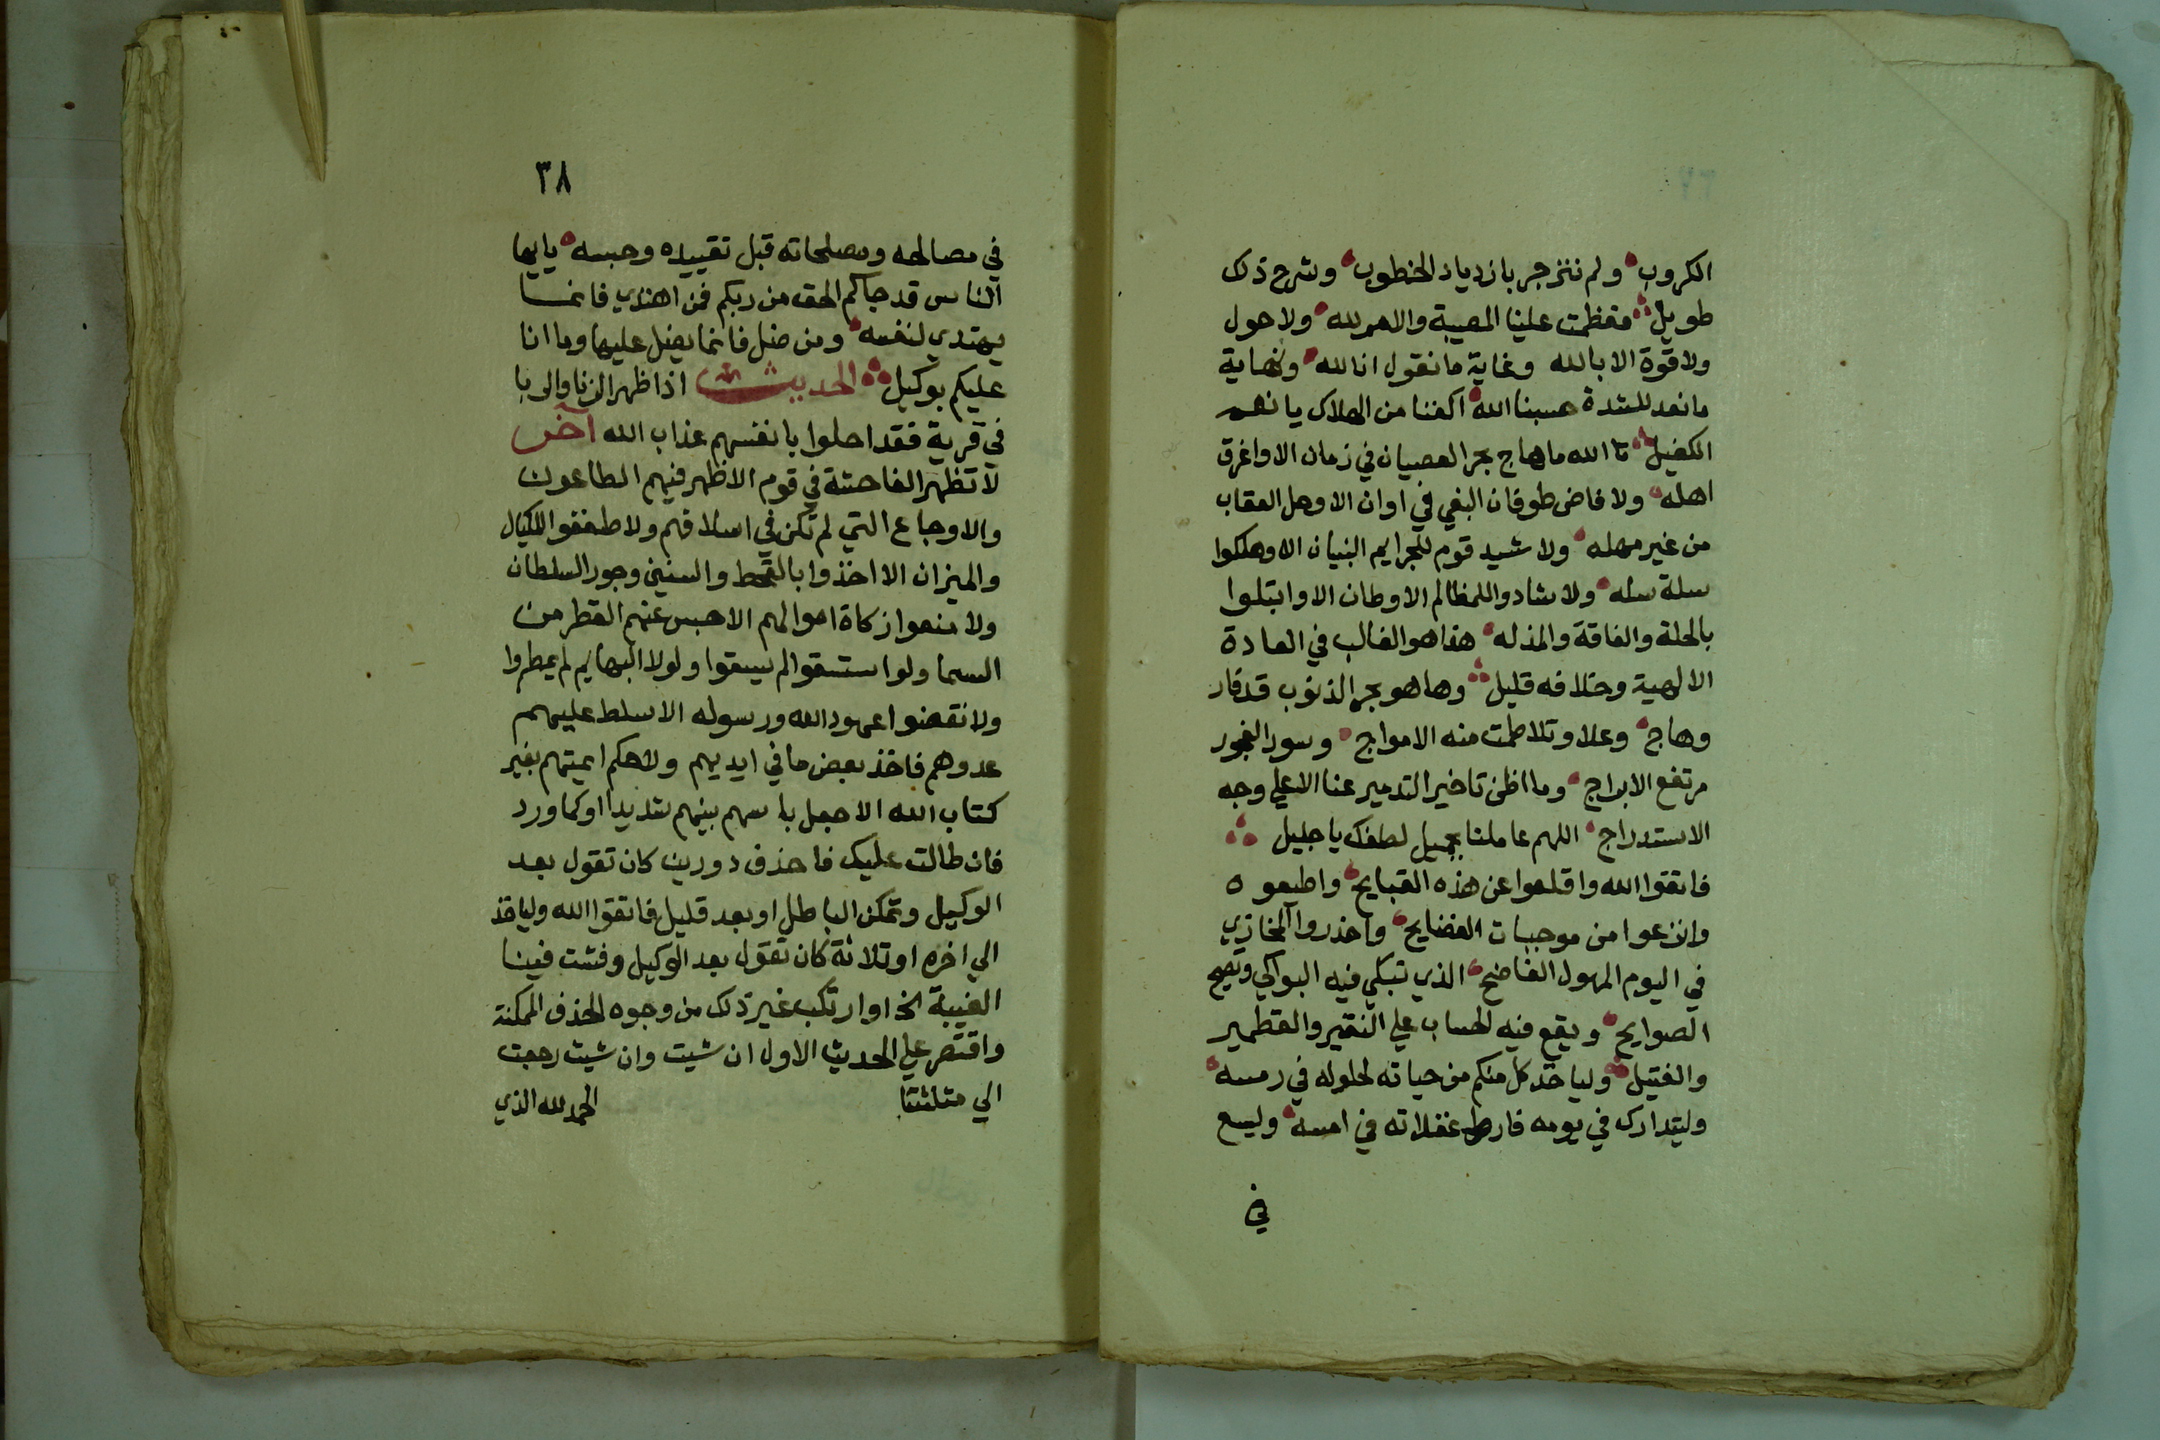 الكروب ولم ننزجر بازدياد الخطوب وشرح ذلك
طويل فعظمت علينا المصيبة والامر لله ولا حول
ولا قوة الا بالله وغاية ما نقول انا لله ونهاية
ما نعد للشدة حسبنا الله اكفنا من الهلاك يا نعم
الكفيل تا الله ما هاج بحر العصيان في زمان الا واغرق
اهله ولا فاض طوفان البغي في اوان الا وحل العقاب
من غير مهله ولا شيد قوم للجرايم البنيان الا وهلكوا
سلة سله ولا شادوا للمظالم الاوطان الا وابتلوا
بالحلة والفاقة والمذله هذا هو الغالب في العادة
الالهية وخلافه قليل وها هو بحر الذنوب قد فار
وهاج وعلا وتلاطمت منه الامواج وسور الفجور
مرتفع الابراج وما اظن تاخير التدمير عنا الا علي وجه
الاستدراج اللهم عاملنا بجميل لطفك يا جليل
فاتقوا الله واقلعوا عن هذه القبايح واطيعوه
وانزعوا من موجبات الفضايح واحذروا المخازي
في اليوم المهول الفاضح الذي تبكي فيه البواكي وتصيح
الصوايح ويقع فيه الحساب علي النقير والقطمير
والفتيل ولياخذ كل منكم من حياته لحلوله في رمسه
وليتدارك في يومه فارط غفلاته في امسه وليسع
في
٣٨
في مصالحه ومصلحاته قبل تقييده وحبسه يا ايها
الناس قد جاكم الحق من ربكم فمن اهتدي فانما
يهتدي لنفسه ومن ضل فانما يضل عليها وما انا
عليكم بوكيل الحديث اذا ظهر الزنا والربا
في قرية فقد احلوا بانفسهم عذاب الله آخر
لا تظهر الفاحشة في قوم الا ظهر فيهم الطاعون
والاوجاع التي لم تكن في اسلافهم ولا طففوا المكيال
والميزان الا اخذوا بالقحط والسنين وجور السلطان
ولا منعوا زكاة اموالهم الا حبس عنهم القطر من
السما ولو استسقوا لم يسقوا ولولا البهايم لم يمطروا
ولا نقضوا عهود الله ورسوله الا سلط عليهم
عدوهم فاخذ بعض ما في ايديهم ولا حكم ايمتهم بغير
كتاب الله الا جعل باسهم بينهم شديدا او كما ورد
فان طالت عليك فاحذف دورين كان تقول بعد
الوكيل وتمكن الباطل او بعد قليل فاتقوا الله ولياخذ
الي اخره او ثلاثة كان تقول بعد الوكيل وفشت فينا
الغيبة الخ او ارتكب غير ذلك من وجوه الحذف الممكنة
واقتصر علي الحديث الاول ان شيت وان شيت رجعت
الي مثلثتا الحمد لله الذي